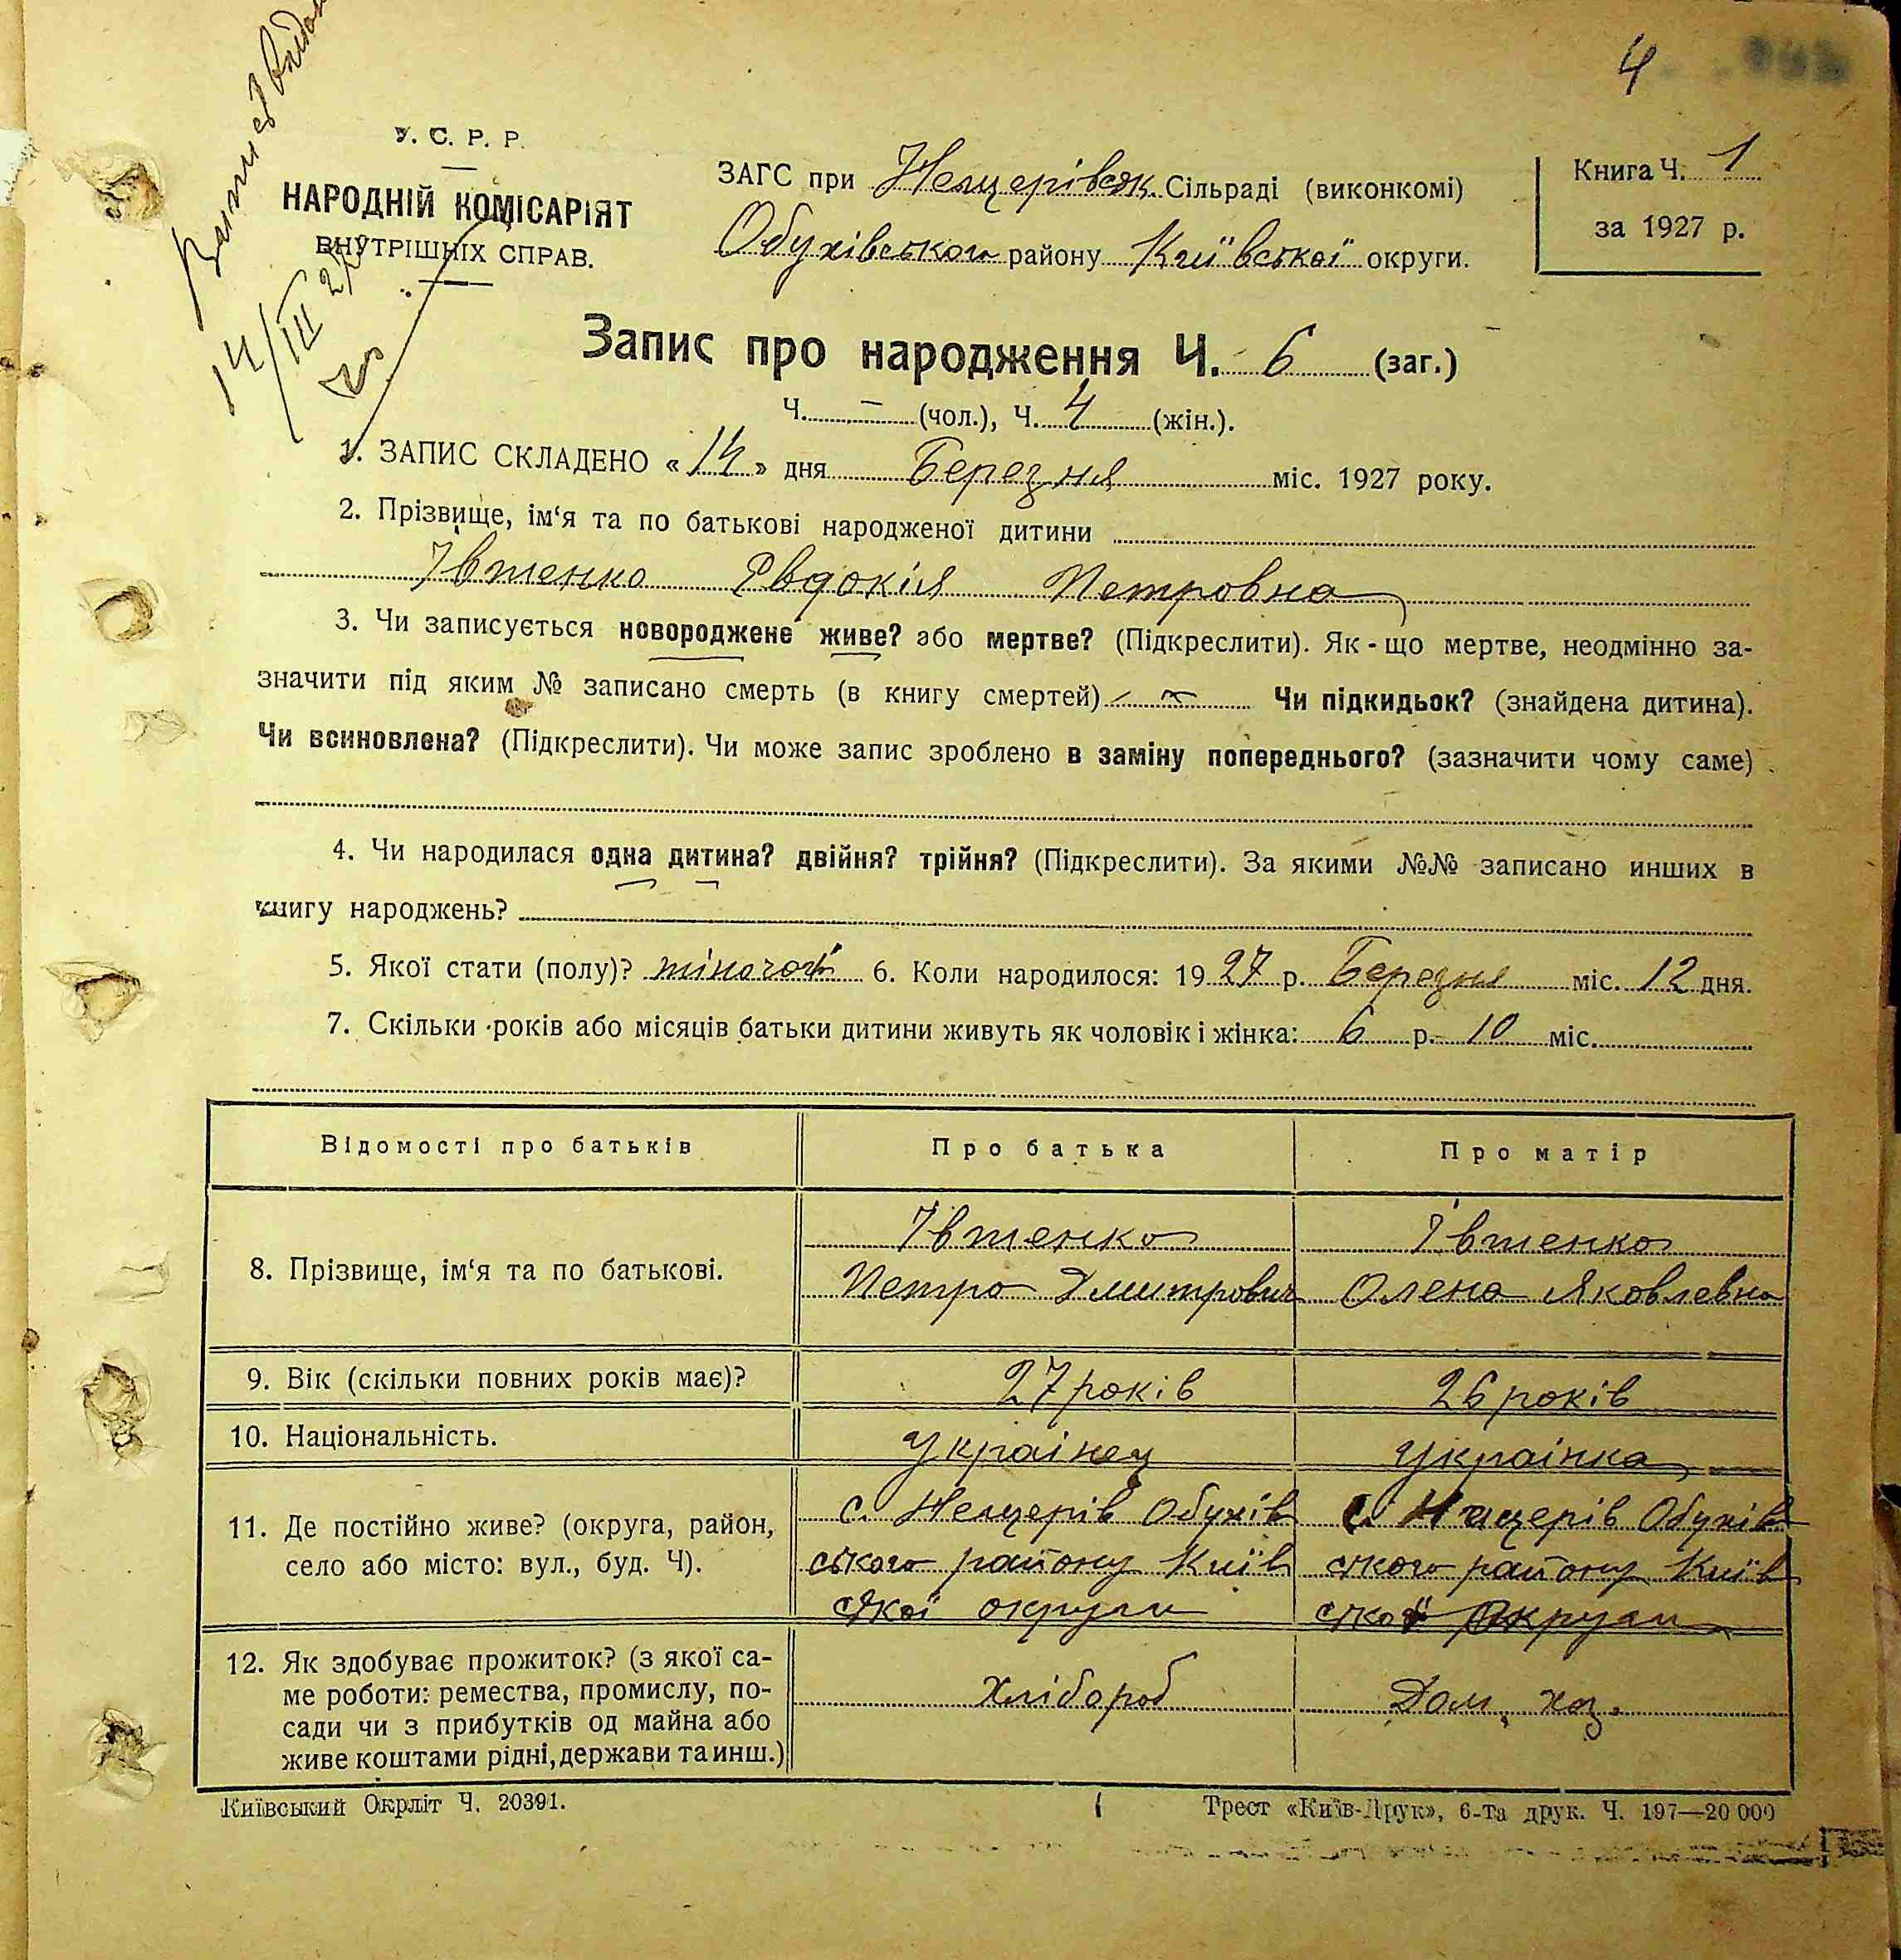 4
У. С. Р. Р.
НАРОДНІЙ КОМІСАРІЯТ
ВНУТРІШНІХ СПРАВ.
14/III 27
ЗАГС при Нещерівськ. Сільраді (виконкомі)
Обухівського району Київської округи.
Книга Ч. 1
за 1927 р.
Запис про народження Ч. 6 (заг.)
Ч. — (чол.), Ч. 4 (жін.).
1. ЗАПИС СКЛАДЕНО «14» дня Березня міс. 1927 року.
2. Прізвище, ім‘я та по батькові народженої дитини
Івженко Євдокія Петровна
3. Чи записується новороджене живе? або мертве? (Підкреслити). Як - що мертве, неодмінно за-
значити під яким № записано смерть (в книгу смертей) Чи підкидьок? (знайдена дитина).
Чи всиновлена? (Підкреслити). Чи може запис зроблено в заміну попереднього? (зазначити чому саме)
4. Чи народилася одна дитина? двійня? трійня? (Підкреслити). За якими №№ записано инших в
книгу народжень?
5. Якої стати (полу)? жіночой 6. Коли народилося: 1927 р. Березня міс. 12 дня.
7. Скільки років або місяців батьки дитини живуть як чоловік і жінка: 6 р. 10 міс.
Відомості про батьків Про батька Про матір
8. Прізвище, ім‘я та по батькові. Івженко Івженко
Петро Дмитрович Олена Яковлевна
9. Вік (скільки повних років має)? 27 років 26 років
10. Національність. Українец Українка
11. Де постійно живе? (округа, район, с. Нещерів Обухів с. Нещерів Обухів
село або місто: вул., буд. Ч). ського району Київ ского району Київ
ської округи ской округи
12. Як здобуває прожиток? (з якої са-
ме роботи: ремества, промислу, по- Хлібороб Дом. хоз.
сади чи з прибутків од майна або
живе коштами рідні, держави та инш.)
Київський Окрліт Ч. 20391. Трест «Київ-Друк», 6-та друк. Ч. 197—20 000